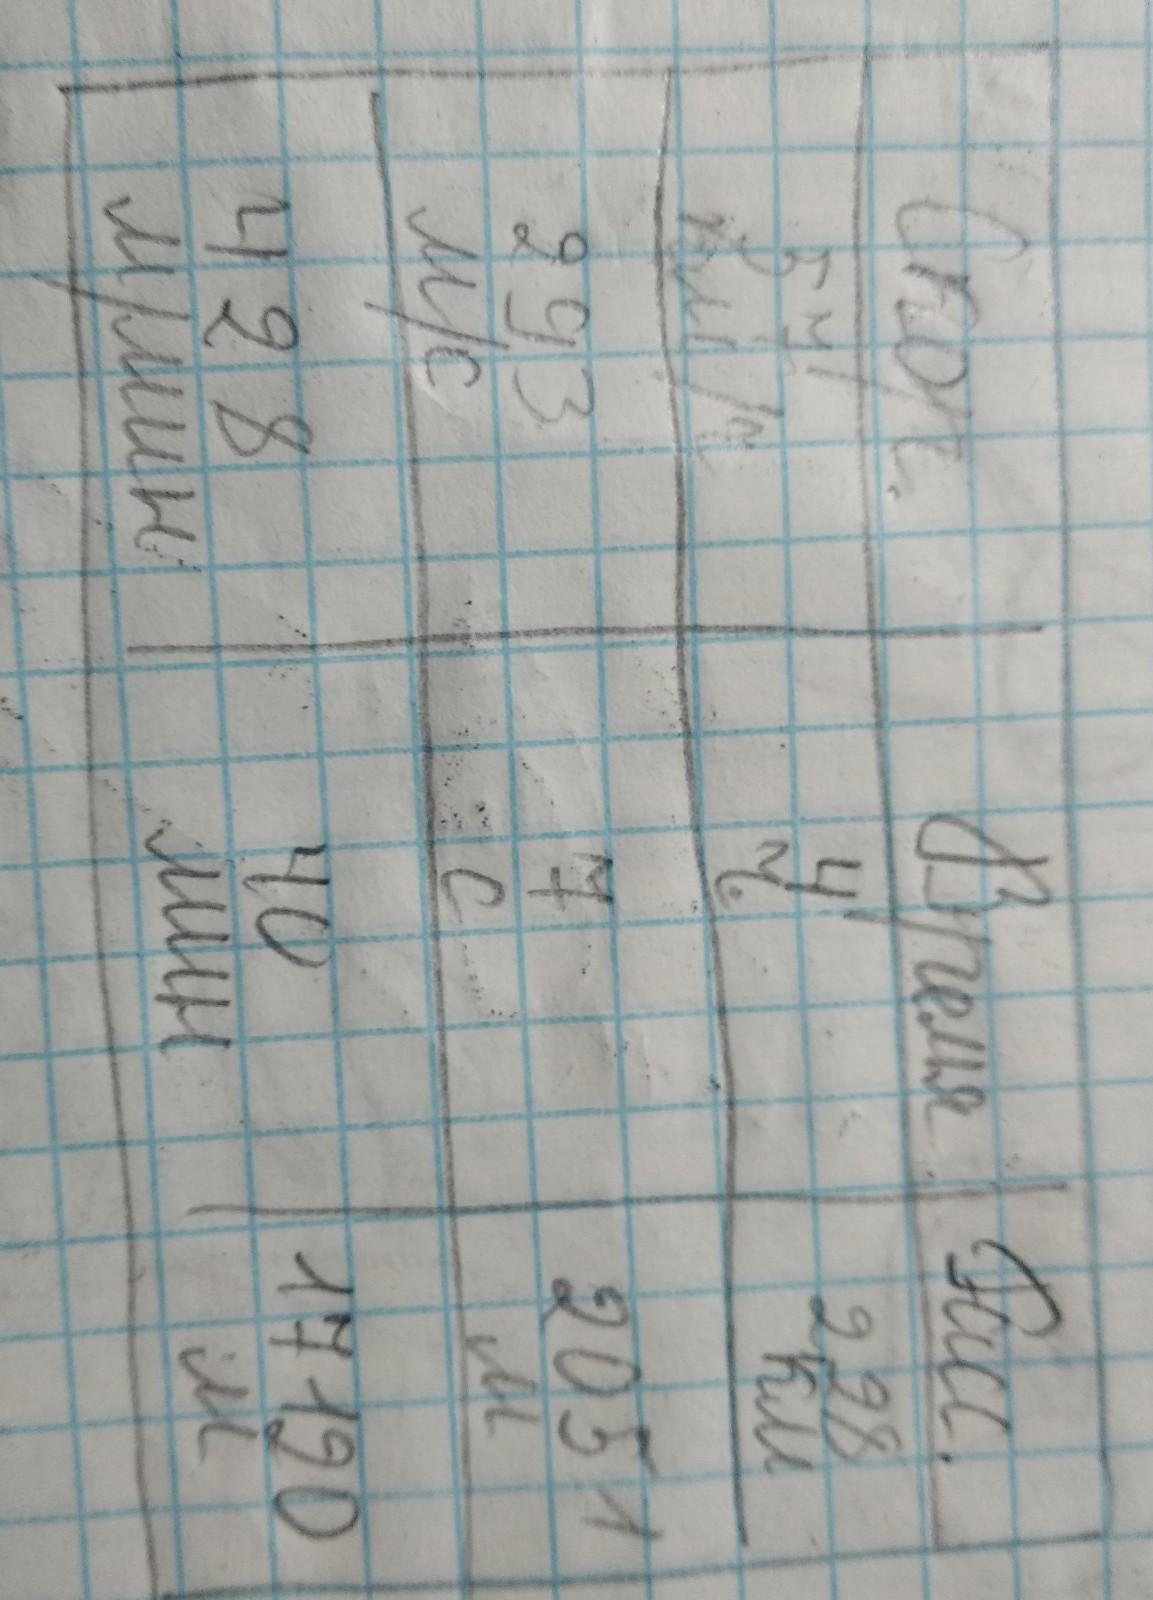 Скор.
Время
Расс.
57
км/ч
4
ч.
228
км
293
м/с
7
с
2051
м
428
м/мин
40
мин
17120
м